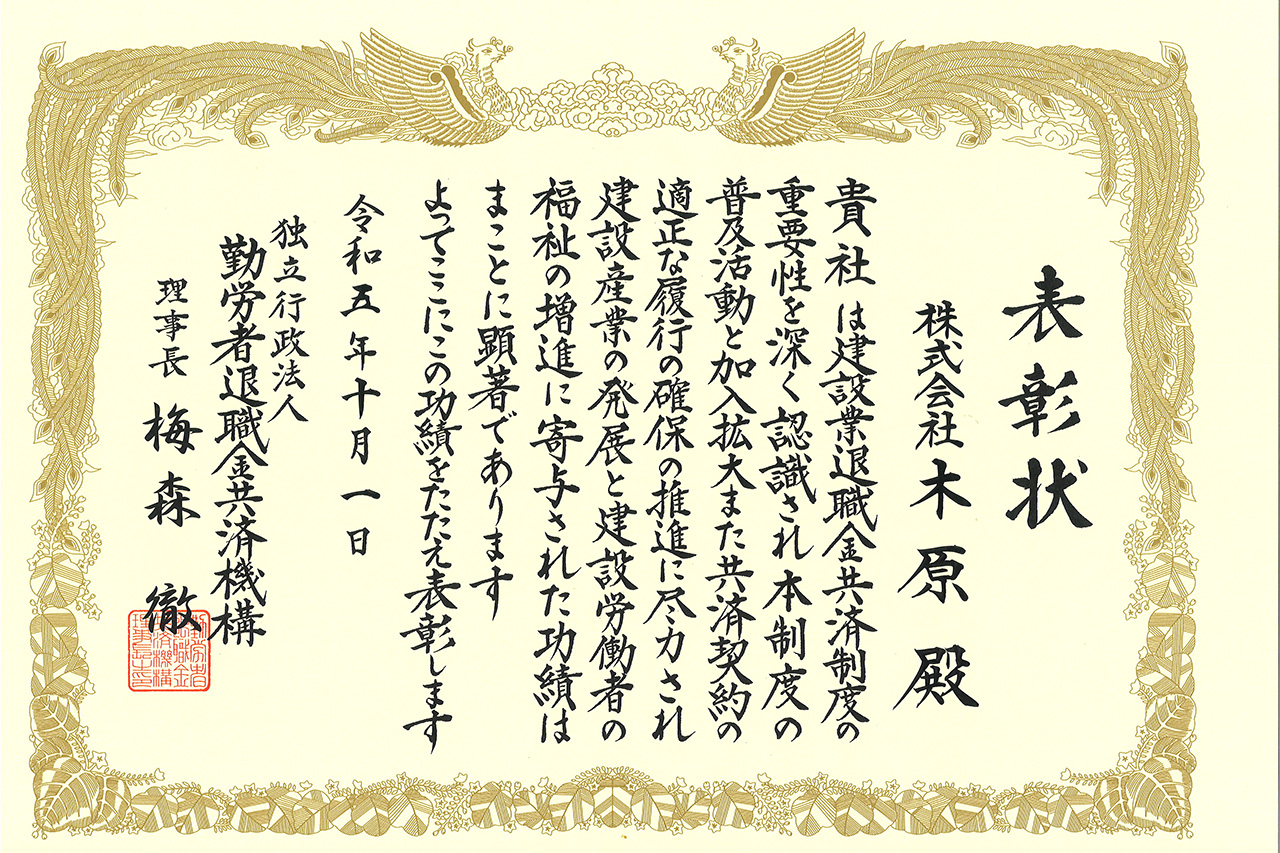 表彰状
株式会社木原殿
貴社は建設業退職金共済制度の
重要性を深く認識され本制度の
普及活動と加入拡大また共済契約の
適正な履行の確保の推進に尽力され
建設産業の発展と建設労働者の
福祉の増進に寄与された功績は
まことに顕著であります
よってここにこの功績をたたえ表彰します
令和五年十月一日
独立行政法人
勤労者退職金共済機構
理事長 梅森徹